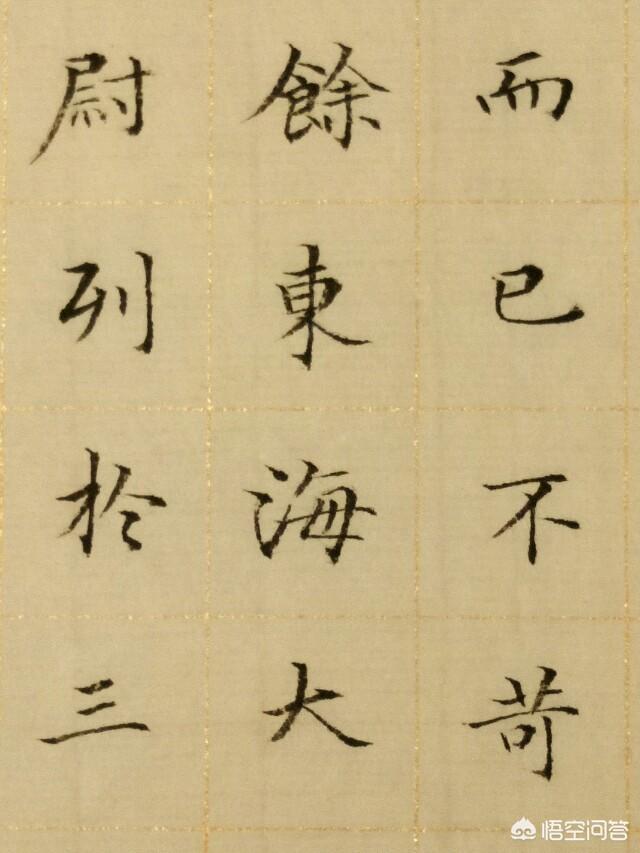 而已不苛
餘東海大
尉列於三
悟空问答